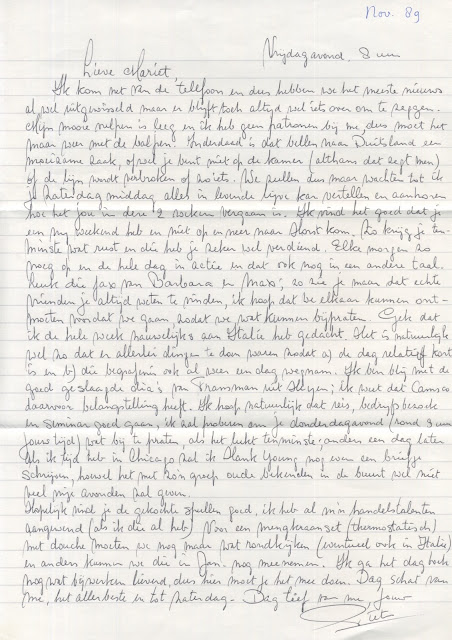 Nov. 89
Vrijdagavond. 8 uur
Lieve Mariet,
Ik kom net van de telefoon en dus hebben we het meeste nieuws
al wel uitgewisseld maar er blijft toch altijd wel iets over om te zeggen.
Mijn mooie vulpen is leeg en ik heb geen patronen bij me, dus moet het
maar weer met de balpen. Inderdaad is dat bellen naar Duitsland een
moeizame zaak, ofwel je bent niet op de kamer (althans dat zegt men)
of de lijn wordt verbroken of zoiets. We zullen dus maar wachten tot ik
je zaterdag middag alles in levende lijve kan vertellen en aanhoren
hoe het jou in deze 2 weken vergaan is. Ik vind het goed dat je
een vrij weekend heb en niet op en neer naar Horst kom. Zo krijg je ten-
minste wat rust en die heb je zeker wel verdiend. Elke morgen zo
vroeg op en de hele dag in actie en dat ook nog in een andere taal.
Leuk die fax van Barbara en Max; zo zie je maar dat echte
vrienden je altijd weten te vinden, ik hoop dat we elkaar kunnen ont-
moeten voordat we gaan zodat we wat kunnen bijpraten. Gek dat
ik de hele week nauwelijks aan Italie heb gedacht. Het is natuurlijk
wel zo dat er allerlei dingen te doen waren zodat a) de dag relatief kort
is en b) die begrafenis ook al weer een dag wegnam. Ik ben blij met de
goed geslaagde dia's van Transman uit; ik weet dat
daarvoor belangstelling heeft. Ik hoop natuurlijk dat reis, bedrijfsbezoek
en seminar goed gaan, ik zal proberen om je donderdagavond (rond 8 uur
jouw tijd) wat bij te praten, als het lukt tenminste, anders een dag later
Als ik tijd heb in Chicago zal ik Hank Young nog even een briefje
schrijven, hoewel het met zo'n groep oude bekenden in de buurt wel niet
veel vrije avonden zal geven.
Hopelijk vind je de gekochte spullen goed, ik heb al m'n handelstalenten
aangewend (als ik die al heb) Voor een mengkraanset (thermostatisch)
met douche moeten we nog maar wat rondkijken (eventueel ook in Italie)
en anders kunnen we die in Jan. nog meenemen. Ik ga het dagboek
nog wat bijwerken lieverd, dus hier moet je het mee doen. Dag schat van
me, het allerbeste en tot zaterdag. Dag lief van me, jouw
Piet